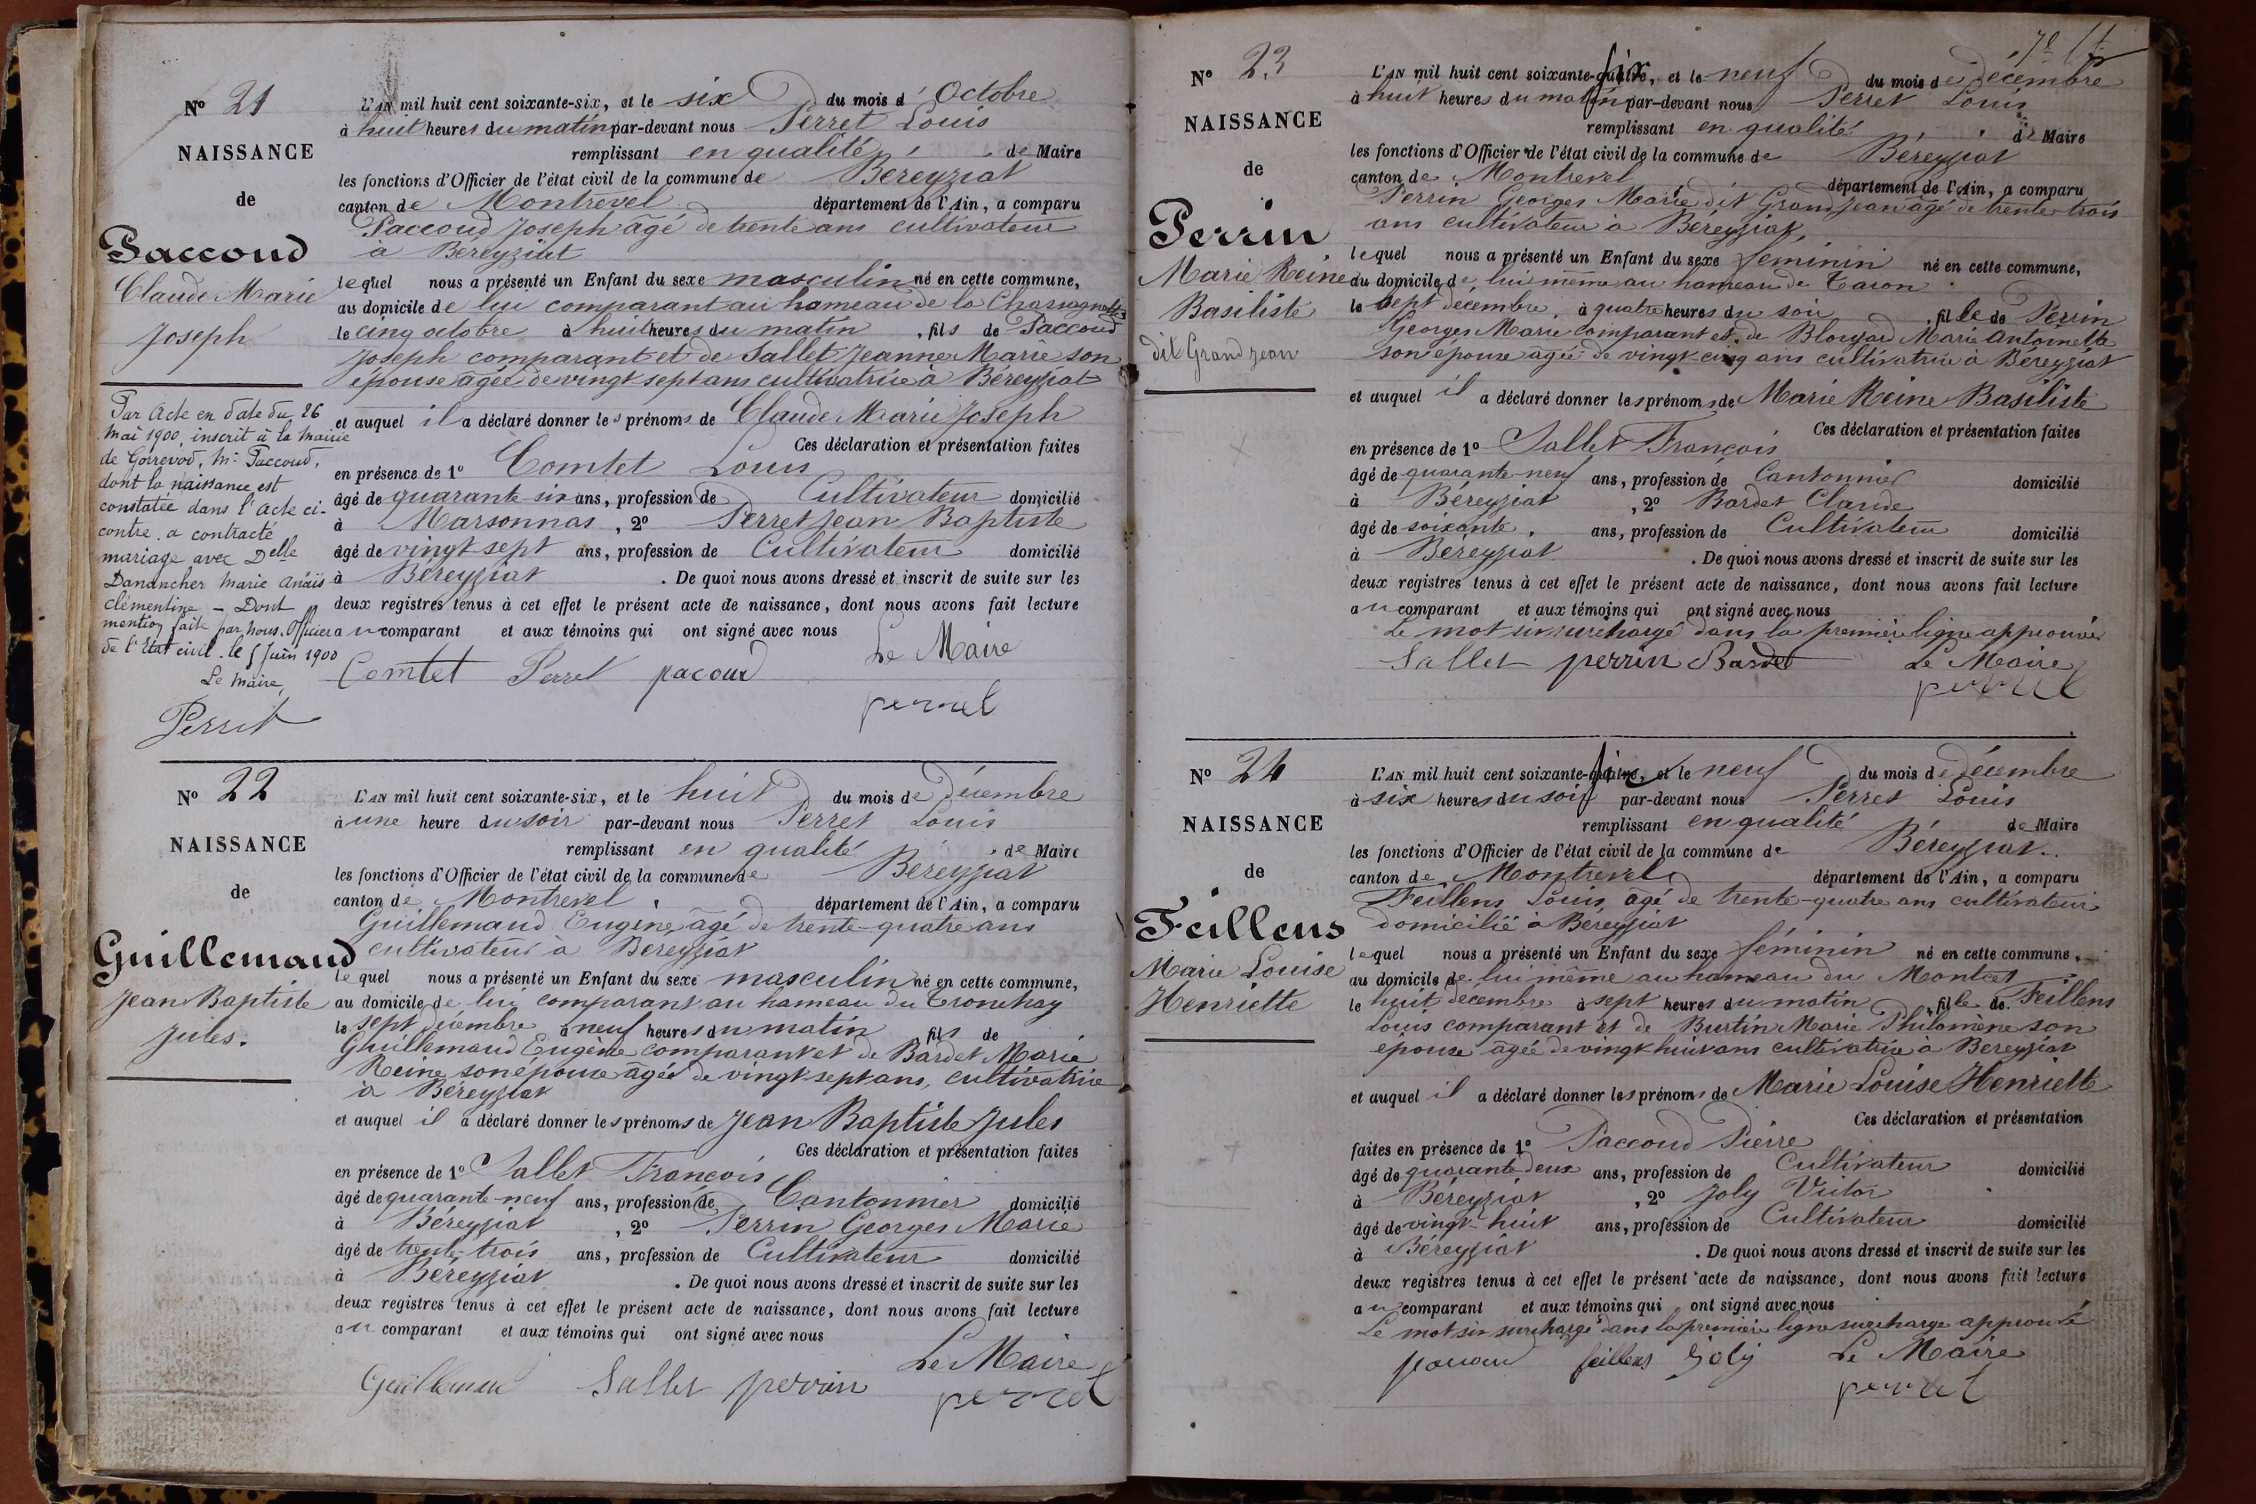 N° 21
NAISSANCE
de
Paccoud
Claude Marie
Joseph
Par acte en date du 26
mai 1900, inscrit à la mairie
de Gorrevod, Mr Paccoud,
dont la naissance est
constatée dans l'acte ci-
contre a contracté
mariage avec Delle
Danancher Marie Anaïs
Clémentine – Dont
mention faite par nous, Officier
de l'Etat civil. le 5 Juin 1900
Le Maire,
Perret
L'AN mil huit cent soixante-six, et le six du mois d'Octobre
à huit heures du matin par-devant nous Perret Louis
remplissant en qualité de Maire
les fonctions d'Officier de l'état civil de la commune de Béreyziat
canton de Montrevel département de l'Ain, a comparu
Paccoud Joseph âgé de trente ans cultivateur
à Béreyziat
lequel nous a présenté un Enfant du sexe masculin né en cette commune,
au domicile de lui comparant au hameau de la
le cinq octobre à huit heures du matin, fils de Paccoud
Joseph comparant et de Sallet Jeanne Marie son
épouse âgée de vingt sept ans cultivatrice à Béreyziat
et auquel il a déclaré donner les prénoms de Claude Marie Joseph
Ces déclaration et présentation faites
en présence de 1° Comtet Louis
âgé de quarante six ans, profession de Cultivateur domicilié
à Marsonnas, 2° Perret Jean Baptiste
âgé de vingt sept ans, profession de Cultivateur domicilié
à Béreyziat. De quoi nous avons dressé et inscrit de suite sur les
deux registres tenus à cet effet le présent acte de naissance, dont nous avons fait lecture
au comparant et aux témoins qui ont signé avec nous
Le Maire
Comtet Perret pacoud
perret
N° 22
NAISSANCE
de
Guillemaud
Jean Baptiste
Jules.
L'AN mil huit cent soixante-six, et le huit du mois de décembre
à une heure du soir par-devant nous Perret Louis
remplissant en qualité de Maire
les fonctions d'Officier de l'état civil de la commune de Béreyziat
canton de Montrevel département de l'Ain, a comparu
Guillemaud Eugène âgé de trente-quatre ans
cultivateur à Béreyziat
lequel nous a présenté un Enfant du sexe masculin né en cette commune,
au domicile de lui comparant au hameau du Tronchay
le sept décembre à neuf heures du matin fils de
Guillemaud Eugène comparant et de Bardet Marie
Reine son épouse âgée de vingt sept ans, cultivatrice
à Béreyziat
et auquel il a déclaré donner les prénoms de Jean Baptiste Jules
Ces déclaration et présentation faites
en présence de 1° Sallet François
âgé de quarante-neuf ans, profession de Cantonnier domicilié
à Béreyziat, 2° Perrin Georges Marie
âgé de trente-trois ans, profession de Cultivateur domicilié
à Béreyziat. De quoi nous avons dressé et inscrit de suite sur les
deux registres tenus à cet effet le présent acte de naissance, dont nous avons fait lecture
au comparant et aux témoins qui ont signé avec nous
Le Maire
Guillemaud Sallet perrin perret
N° 23
NAISSANCE
de
Perrin
Marie Reine
Basiliste
dit Grandjean
L'AN mil huit cent soixante-six, et le neuf du mois de décembre
à huit heures du matin par-devant nous Perret Louis
remplissant en qualité de Maire
les fonctions d'Officier de l'état civil de la commune de Béreyziat
canton de Montrevel département de l'Ain, a comparu
Perrin Georges Marie dit Grandjean âgé de trente-trois
ans cultivateur à Béreyziat,
lequel nous a présenté un Enfant du sexe féminin né en cette commune,
du domicile de lui même au hameau de
le sept décembre, à quatre heures du soir, fille de Perrin
Georges Marie comparant et de Marie Antoinette
son épouse âgée de vingt cinq ans cultivatrice à Béreyziat
et auquel il a déclaré donner les prénoms de Marie Reine Basiliste
Ces déclaration et présentation faites
en présence de 1° Sallet François
âgé de quarante-neuf ans, profession de Cantonnier domicilié
à Béreyziat, 2° Bardet Claude
âgé de soixante ans, profession de Cultivateur domicilié
à Béreyziat. De quoi nous avons dressé et inscrit de suite sur les
deux registres tenus à cet effet le présent acte de naissance, dont nous avons fait lecture
au comparant et aux témoins qui ont signé avec nous
Le mot six surchargé dans la première ligne approuvée
Sallet perrin Bardet Le Maire
perret
N° 24
NAISSANCE
de
Feillens
Marie Louise
Henriette
L'AN mil huit cent soixante-six, et le neuf du mois de décembre
à six heures du soir par-devant nous Perret Louis
remplissant en qualité de Maire
les fonctions d'Officier de l'état civil de la commune de Béreyziat
canton de Montrevel département de l'Ain, a comparu
Feillens Louis âgé de trente-quatre ans cultivateur
domicilié à Béreyziat
lequel nous a présenté un Enfant du sexe féminin né en cette commune,
au domicile de lui même au hameau du Montcet
le huit décembre à sept heures du matin, fille de Feillens
Louis comparant et de Burtin Marie Philomène son
épouse âgée de vingt huit ans cultivatrice à Béreyziat
et auquel il a déclaré donner les prénoms de Marie Louise Henriette
Ces déclaration et présentation
faites en présence de 1° Paccoud Pierre
âgé de quarante deux ans, profession de Cultivateur domicilié
à Béreyziat, 2° Joly Victor
âgé de vingt-huit ans, profession de Cultivateur domicilié
à Béreyziat. De quoi nous avons dressé et inscrit de suite sur les
deux registres tenus à cet effet le présent acte de naissance, dont nous avons fait lecture
au comparant et aux témoins qui ont signé avec nous
Le mot six surchargé dans la première ligne surcharge approuvé
feillens Joly Le Maire
perret